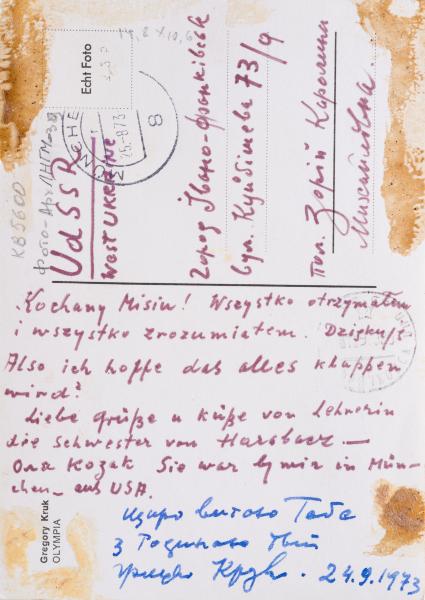 Echt Foto
MÜNCHEN
25.-8.73
8
К85600
UdSSR
West Ukraine
город Івано-Франківськ
вул. Куйбішева 73/9
пол. Зорій Кароліна
Михайлівна.
Kochany Misiu! Wszystko otrzymałem
i wszystko zrozumiałem. Dziękuję
Also ich hoffe das alles klappen
wird?
Liebe Grüße u Küße von Lehrerin
die Schwester von
Ona Kozak Sie war by mir in Mün-
chen – aus USA.
щиро витаю Тебе
з Родиною Твій
Грицько Крук. 24.9.1973
Gregory Kruk
OLYMPIA